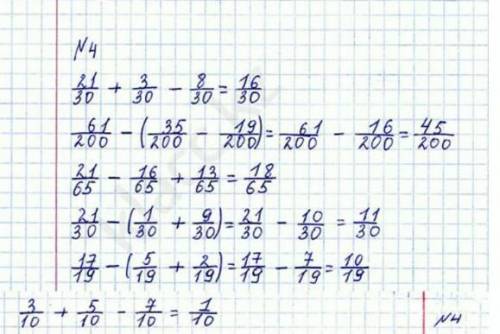 N4
21/30 + 3/30 - 8/30 = 16/30
61/200 - (35/200 - 19/200) = 61/200 - 16/200 = 45/200
21/65 - 16/65 + 13/65 = 18/65
21/30 - (1/30 + 9/30) = 21/30 - 10/30 = 11/30
17/19 - (5/19 + 2/19) = 17/19 - 7/19 = 10/19
3/10 + 5/10 - 7/10 = 1/10
N4